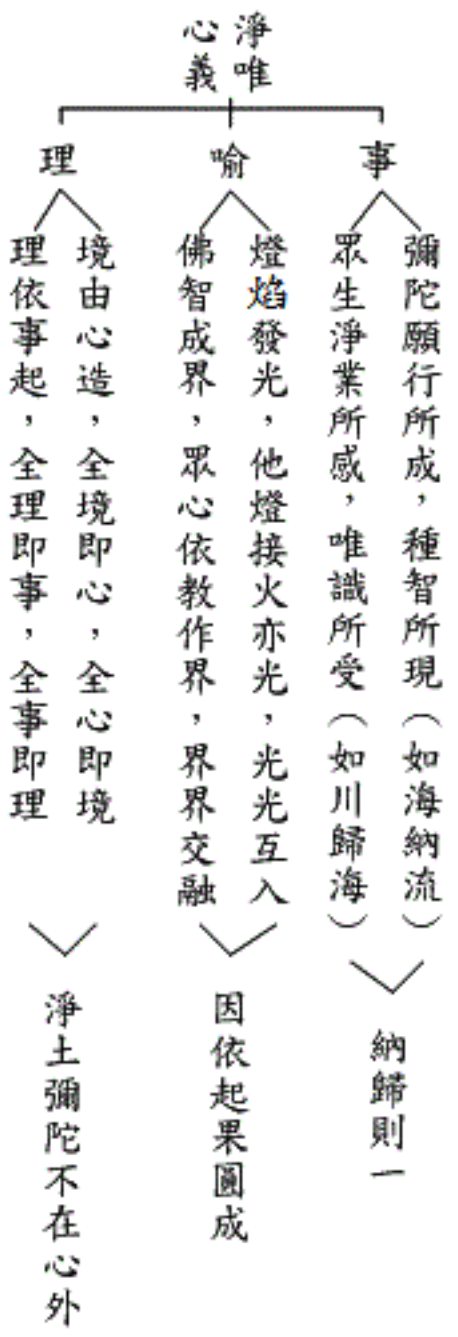 淨唯
心義
事
彌陀願行所成，種智所現（如海納流）
眾生淨業所感，唯識所受（如川歸海）
納歸則一
喻
燈焰發光，他燈接火亦光，光光互入
佛智成界，眾心依教作界，界界交融
因依起果圓成
理
境由心造，全境即心，全心即境
理依事起，全理即事，全事即理
淨土彌陀不在心外